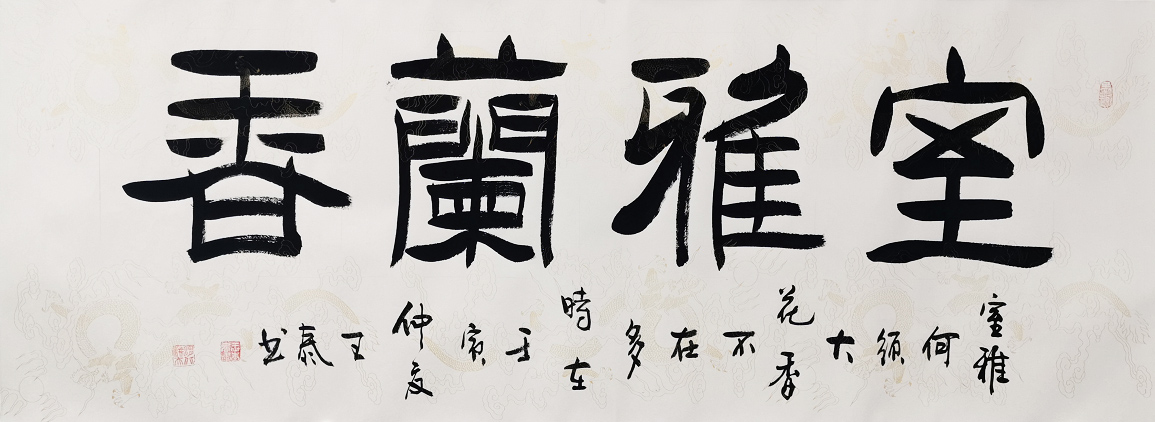 室雅蘭香
室雅何須大花香不在多時在壬寅仲夏王泰書